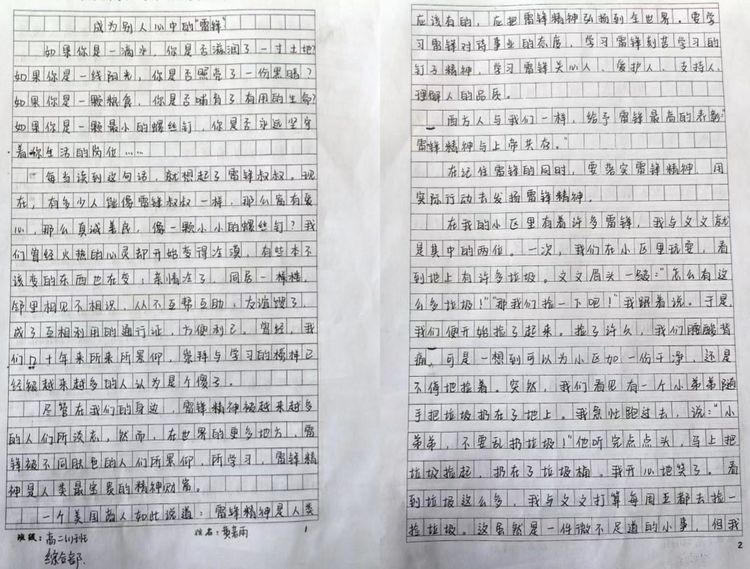 成为别人心中的“雷锋”
如果你是一滴水，你是否滋润了一寸土地？
如果你是一线阳光，你是否照亮了一份黑暗？
如果你是一颗粮食，你是否哺育了有用的生命？
如果你是一颗最小的螺丝钉，你是否永远坚守
着你生活的岗位……
每当读到这句话，就想起了雷锋叔叔。现
在，有多少人能像雷锋叔叔一样，那么富有爱
心，那么真诚善良，像一颗小小的螺丝钉？我
们曾经火热的心灵却开始变得冷漠，有些本不
该变的东西也在变；亲情冷了，同居一楼，
邻里相见不相识，从不互帮互助；友谊馊了，
成了互相利用的通行证，方便利己。曾经，我
们几十年来所来所景仰，崇拜与学习的榜样已
经被越来越多的人认为是个傻子。
尽管在我们的身边，雷锋精神被越来越多
的人们所淡忘，然而，在世界的更多地方，雷
锋被不同肤色的人们所景仰，所学习，雷锋精
神是人类最宝贵的精神财富。
一个美国商人如此说道：雷锋精神是人类
班级：高二(1)班 姓名：黄嘉雨 1
综合部
应该有的，应把雷锋精神弘扬到全世界。要学
习雷锋对待事业的态度，学习雷锋刻苦学习的
钉子精神，学习雷锋关心人、爱护人、支持人、
理解人的品质。
西方人与我们一样，给予雷锋最高的表彰：“
雷锋精神与上帝共存。”
在记住雷锋的同时，要落实雷锋精神，用
实际行动去发扬雷锋精神。
在我的小区里有着许多雷锋，我与文文就
是其中的两位。一次，我们在小区里玩耍，看
到地上有许多垃圾。文文眉头一皱：“怎么有这
么多垃圾！”“那我们捡一下吧！”我跟着说。于是，
我们便开始捡了起来。捡了许久，我们腰酸背
痛，可是一想到可以为小区加一份干净，还是
不停地捡着。突然，我们看见有一个小弟弟随
手把垃圾扔在了地上。我急忙跑过去，说：“小
弟弟，不要乱扔垃圾！”他听完点点头，马上把
垃圾捡起，扔在了垃圾桶。我开心地笑了。看
到垃圾这么多，我与文文打算每周五都去捡一
捡垃圾。这虽然是一件微不足道的小事，但我
2